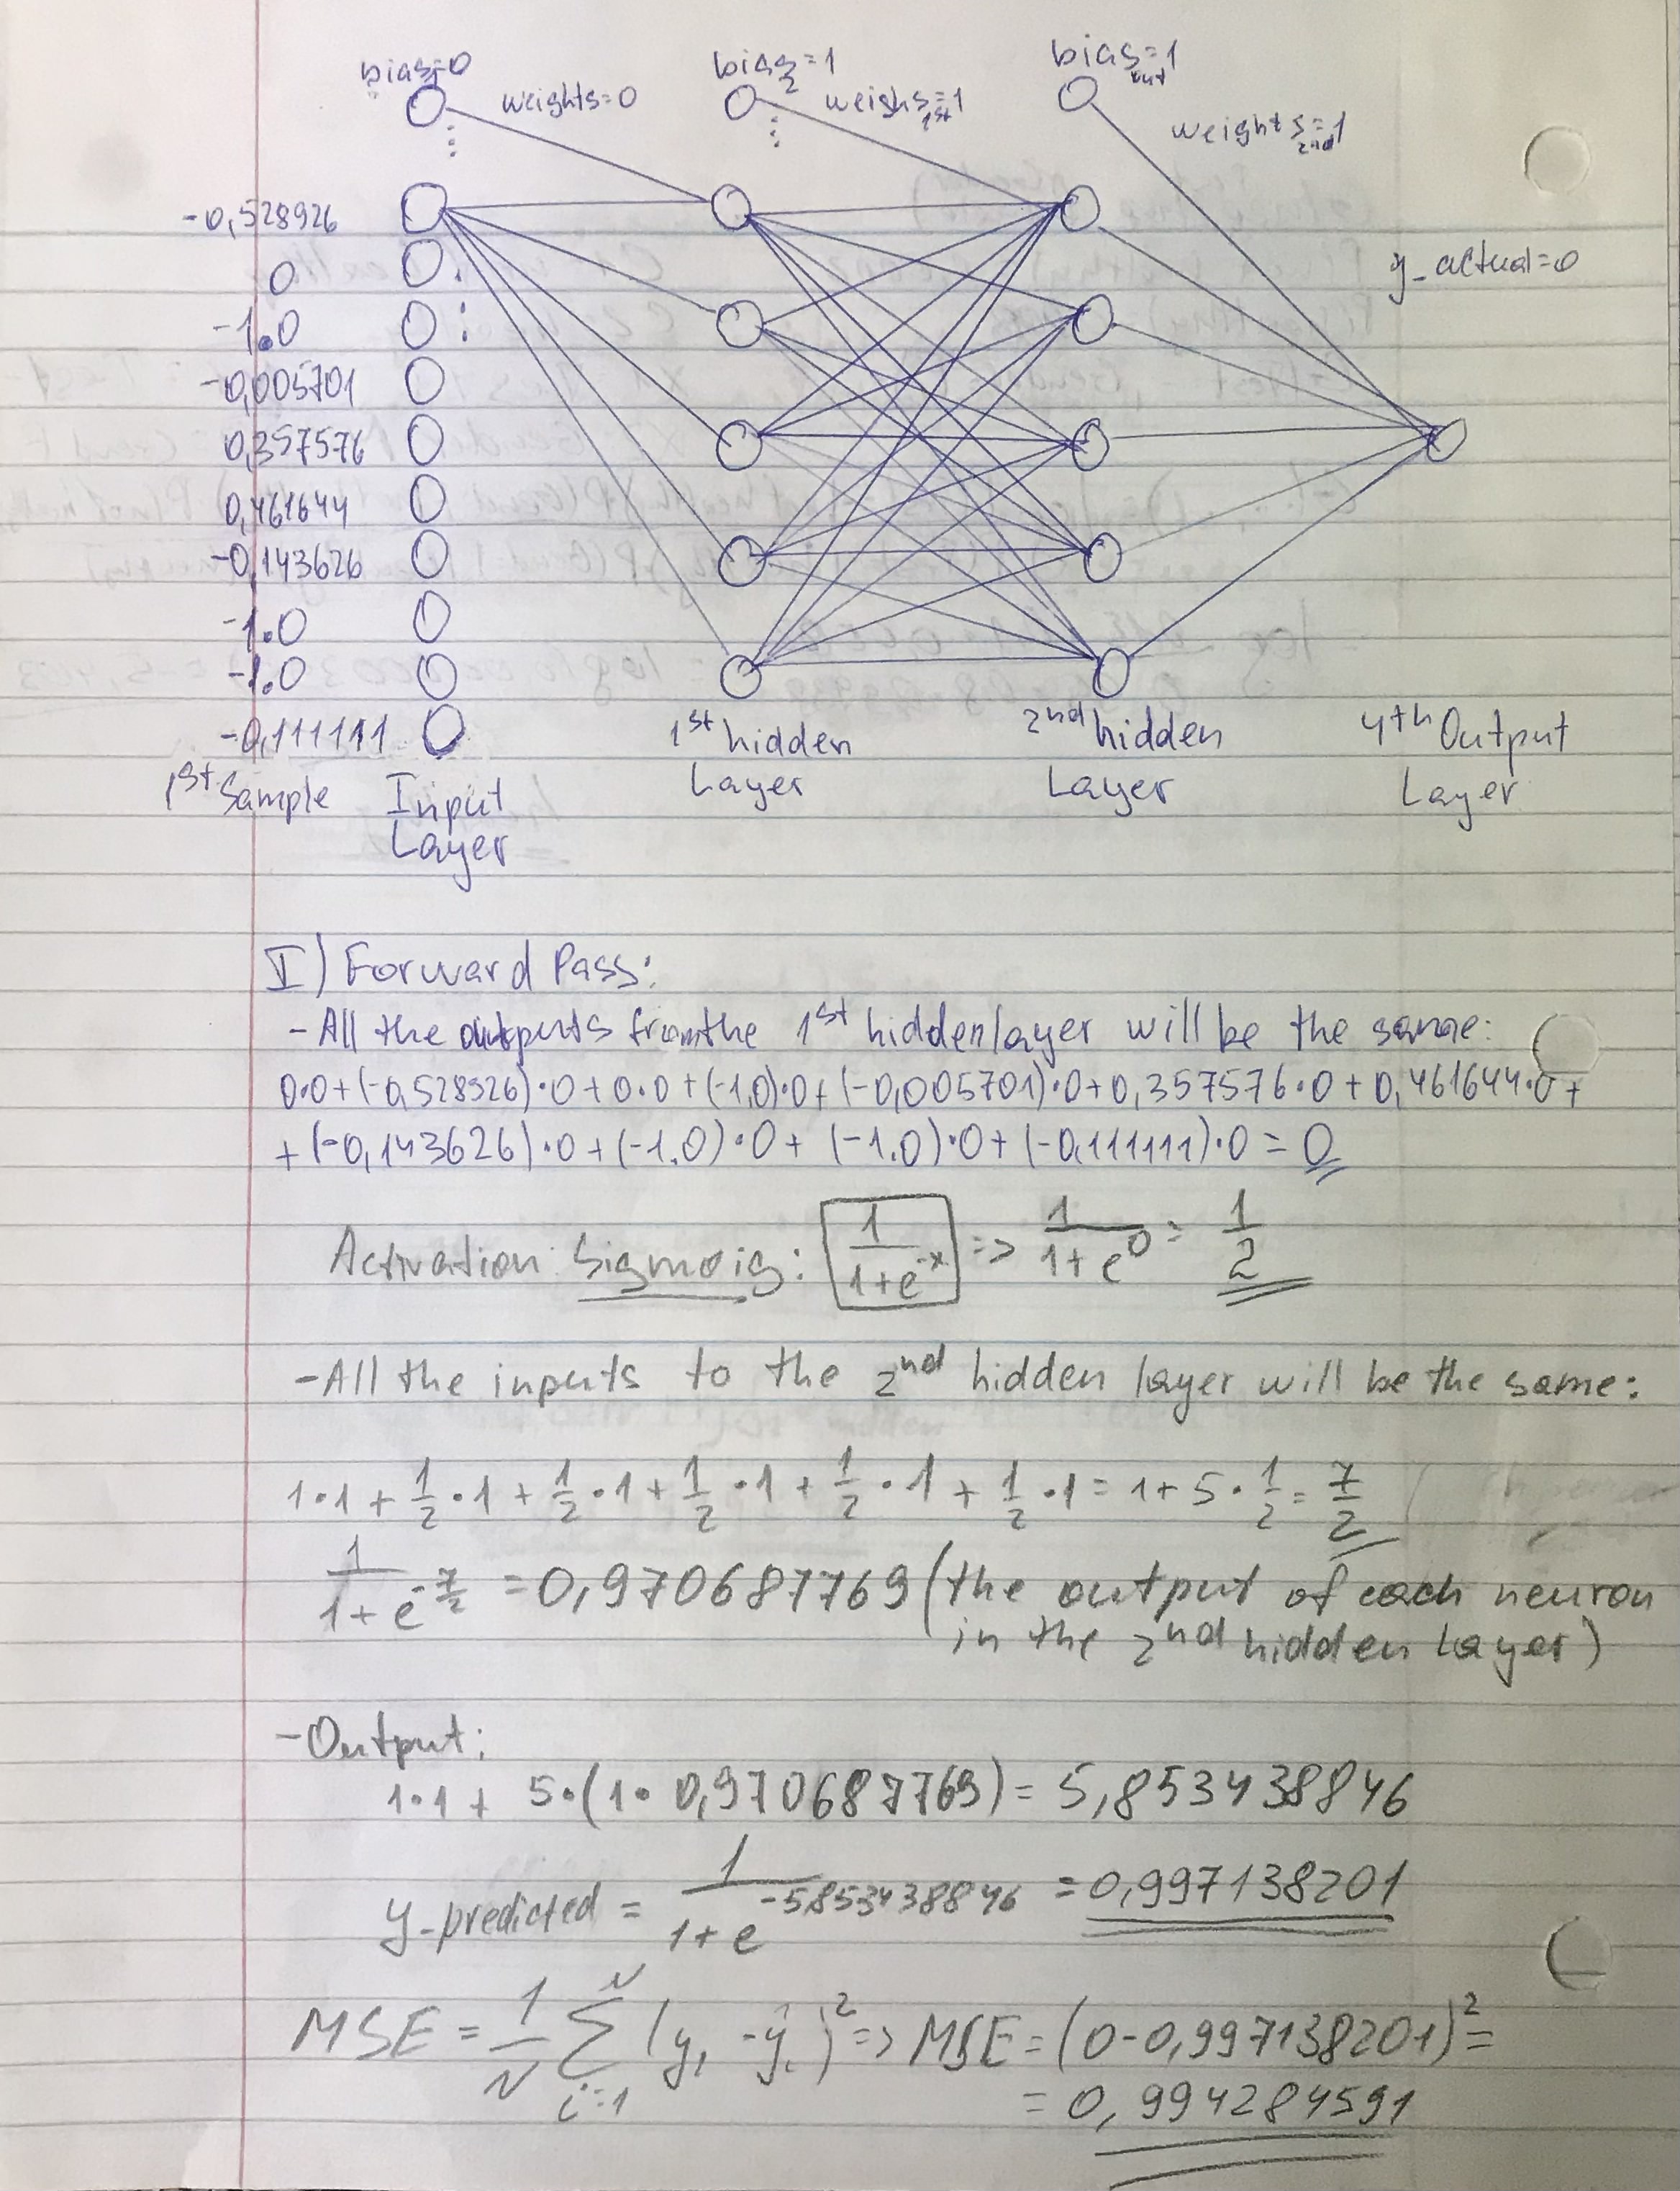 bias1=0 bias2=1 bias out=1
weights=0 weighs1st=1 weights2nd=1
-0,528926
y_actual=0
0
-1.0
-0,005701
0,357576
0,461644
-0,143626
-1.0
-1.0
-0,111111
1st Sample
Input
Layer
1st hidden
Layer
2nd hidden
Layer
4th Output
Layer
I) Forward Pass:
- All the outputs from the 1st hidden layer will be the same:
0·0+(-0,528926)·0+0·0+(-1,0)·0+(-0,005701)·0+0,357576·0+0,461644·0+
+(-0,143626)·0+(-1.0)·0+(-1.0)·0+(-0,111111)·0=0
Activation: Sigmoig: 1/(1+e^-x) => 1/(1+e^0) = 1/2
-All the inputs to the 2nd hidden layer will be the same:
1·1+1/2·1+1/2·1+1/2·1+1/2·1+1/2·1=1+5·1/2=7/2
1/(1+e^-7/2) =0,970687769 (the output of each neuron
in the 2nd hidden Layer)
-Output:
1·1+ 5·(1·0,970687769)=5,853438846
y_predicted = 1/(1+e^-5,853438846) =0,997138201
MSE = 1/N ∑ i=1 N (yi - ŷi)² => MSE = (0-0,997138201)² =
= 0,994284591